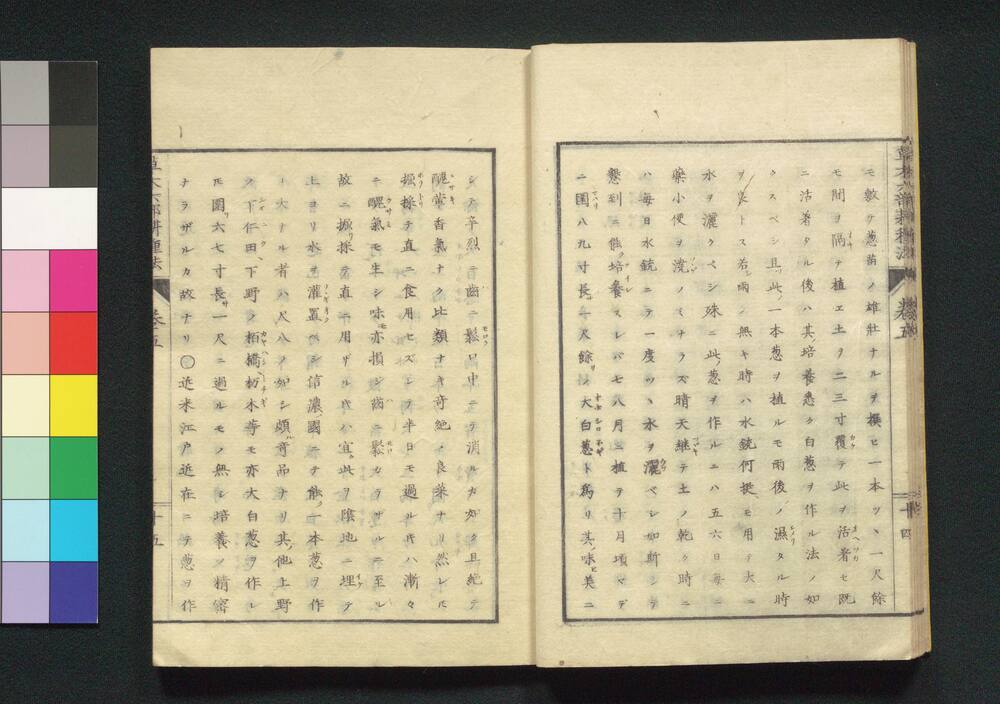 モ敷ケ葱苗ノ雄壯ナルヲ撰ヒ一本ツヽ一尺餘
モ間ヲ隔テ植エ土ヲ二三寸覆テ此ヲ活著セ既
ニ活著タル後ハ其培養悉ク白葱ヲ作ル法ノ如
クスベシ且此一本葱ヲ植ルモ雨後ノ濕タル時
ヲトス若雨ノ無キ時ハ水銃何挺モ用テ大ニ
水ヲ灑クベシ殊ニ此葱ヲ作ルニハ五六日毎ニ
藥小便ヲ澆ノミナラズ晴天継テ土ノ乾ク時ニ
ハ毎日水銃ニテ一度ツヽ水ヲ灑ベシ如斯シテ
懇到ニ能培養スレバ七八月ニ植テ十月頃マデ
ニ圍八九寸長二尺餘ノ大白葱ト為リ其味美ニ
草木六部耕種法 巻五 十四
シテ辛烈ニ齒ニ鬆口中ニテ消ルカ如ク且絶テ
醜葷香氣ナク比類ナキ奇絶ノ良菜ナリ然レに
掘採テ直ニ食用セズシテ半日モ過ル氏ハ漸々
ニ醜氣モ生シ味モ亦損シ齒ニ鬆カラザルニ至ル
故ニ掘採テ直ニ用ザル氏ハ宜ク此ヲ陰地ニ埋テ
上ヨリ水ヲ灌置ベシ信濃國ニテ能一本葱ヲ作
ト大ナル者ハ尺八ノ如シ頗ル奇品ナリ其他上野
ノ下仁田、下野ノ栢橋枋木等モ亦大白葱ヲ作レ
氏圍リ六七寸長サ一尺ニ過ルモノ無シ培養ノ精密
ナラザルカ故ナリ〇近来江戸近在ニテ葱ヲ作
草木六部耕種法 巻五 十五